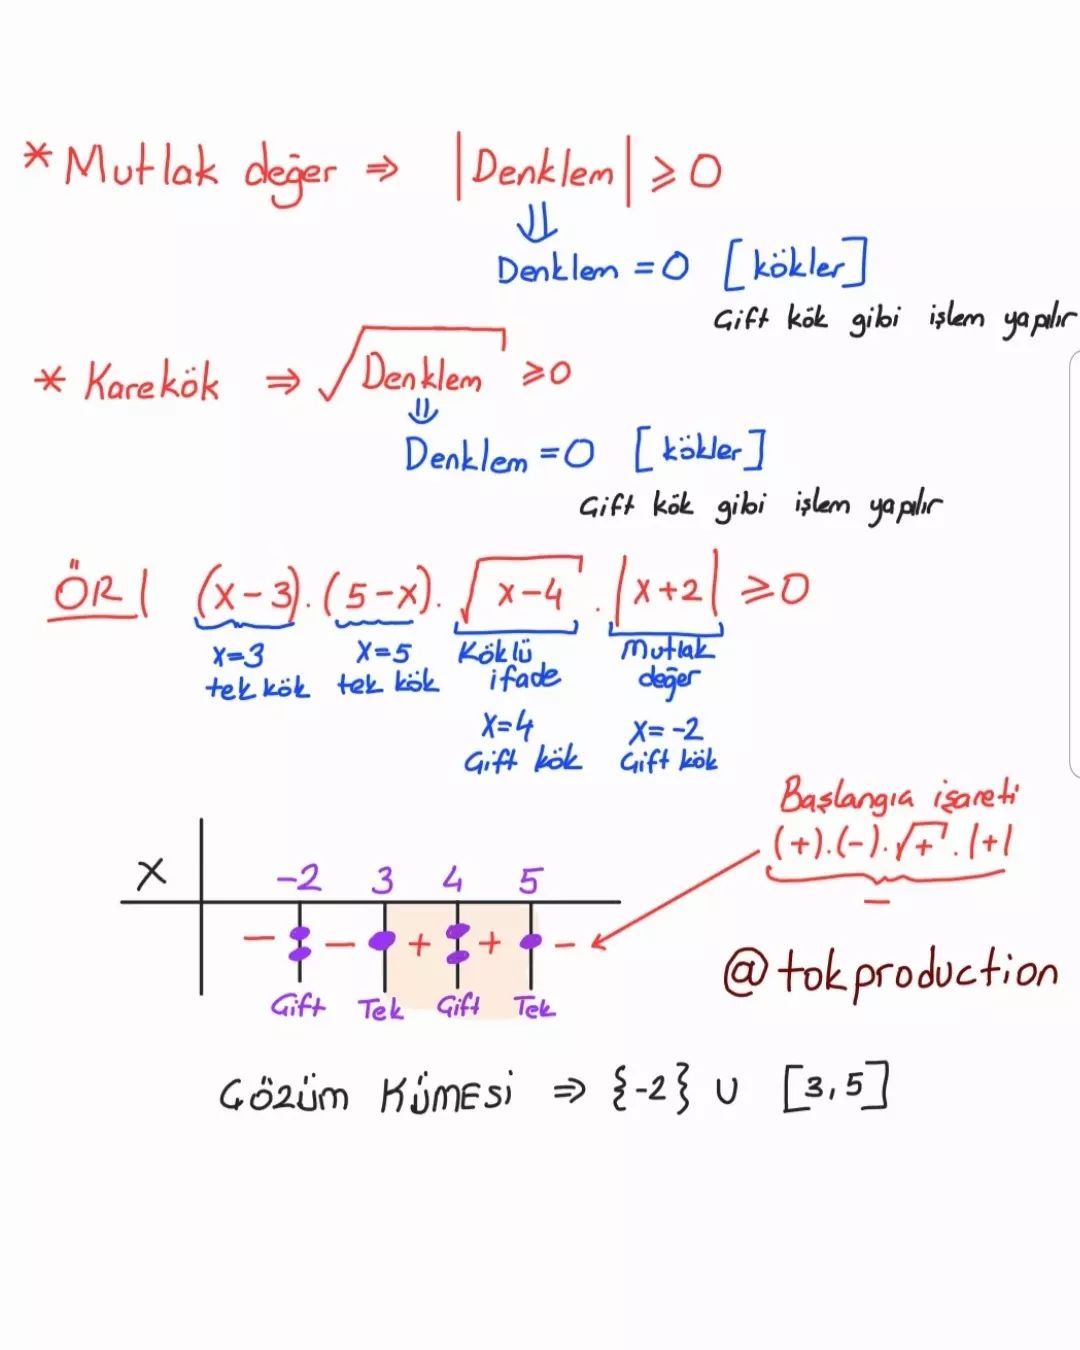 * Mutlak değer ⇒ |Denklem| ⩾ 0
⇓
Denklem = 0 [kökler]
Çift kök gibi işlem yapılır
* Karekök ⇒ √Denklem ⩾ 0
⇓
Denklem = 0 [kökler]
Çift kök gibi işlem yapılır
ÖR| (x-3).(5-x).√x-4 .|x+2| ⩾ 0
x=3 x=5 Köklü Mutlak
tek kök tek kök ifade değer
x=4 x=-2
Çift kök Çift kök
Başlangıç işareti
(+).(-).√+.|+|
-
x -2 3 4 5
- - + + -
Çift Tek Çift Tek
@tokproduction
ÇÖZÜM KÜMESİ ⇒ {-2} ∪ [3,5]